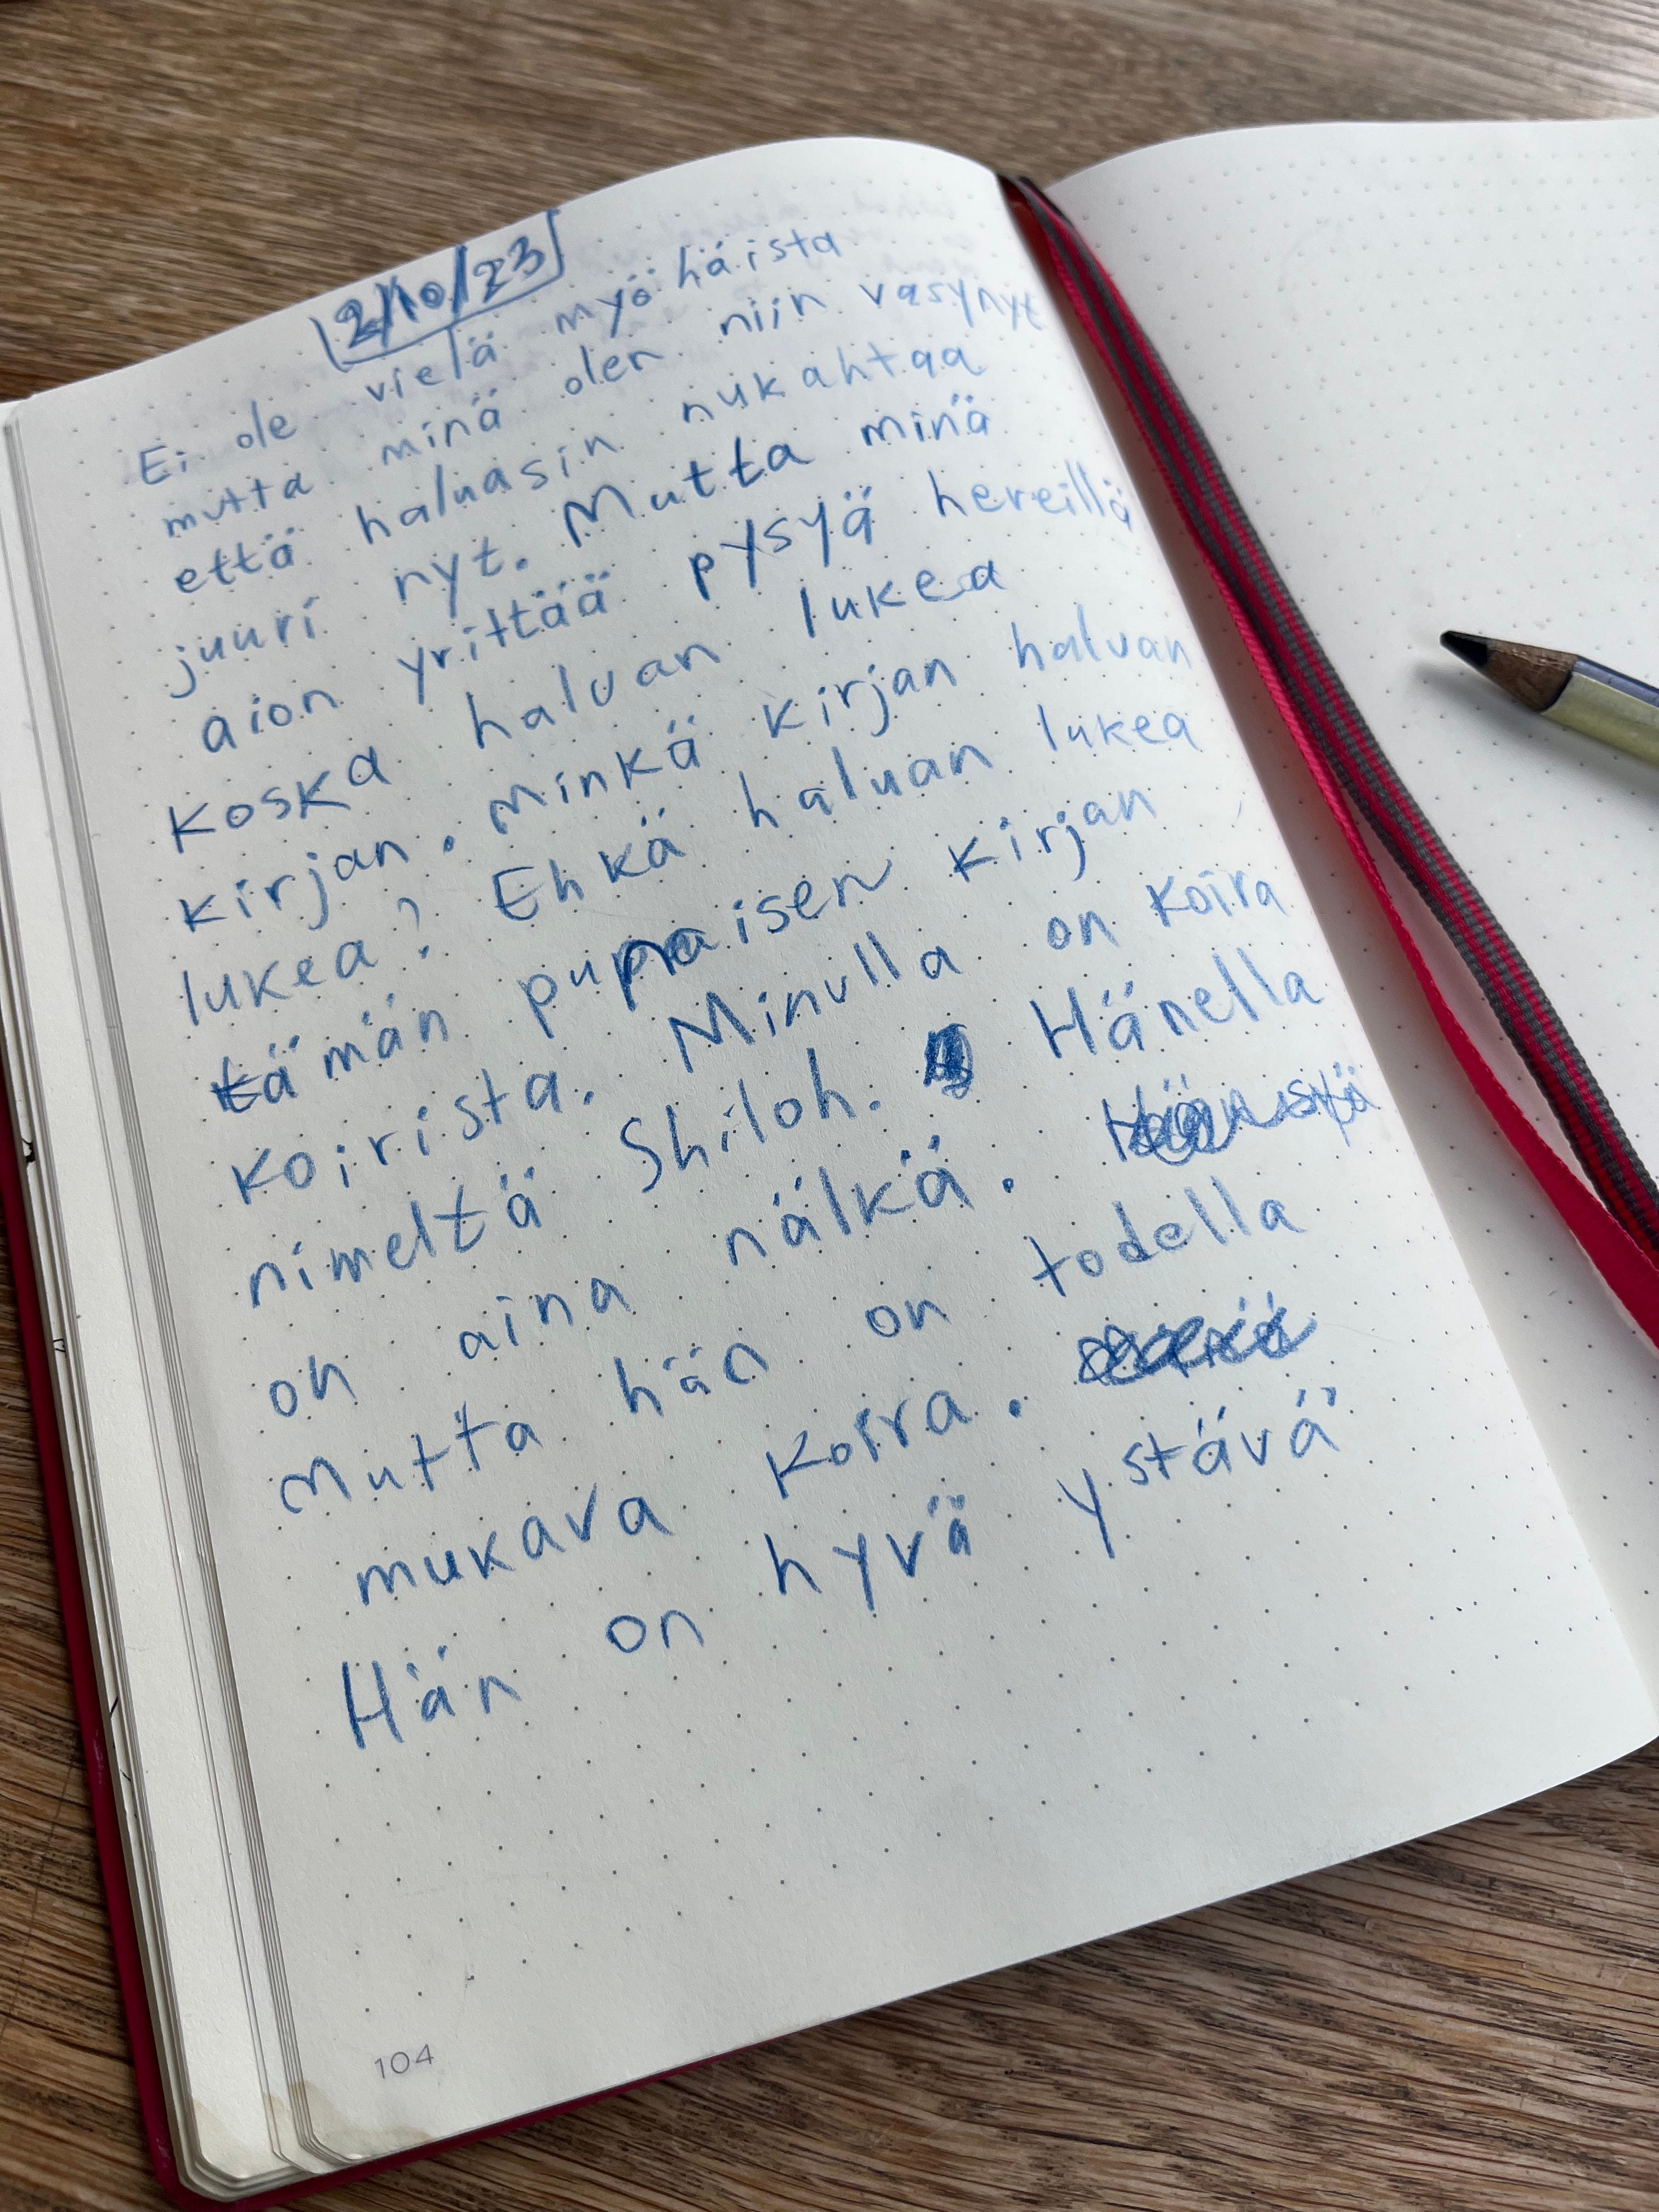 2/10/23
Ei ole vielä myöhäista
mutta minä olen niin vasynyt
että haluasin nukahtaa
juuri nyt. Mutta minä
aion yrittää pysyä hereillä
koska haluan lukea
kirjan. Minkä kirjan haluan
lukea? Ehkä haluan lukea
tämän kirjan
koirista. Minulla on koira
nimeltä Shiloh. Hänella
on aina nälkä.
Mutta hän on todella
mukava koira.
Hän on hyvä ystävä
104